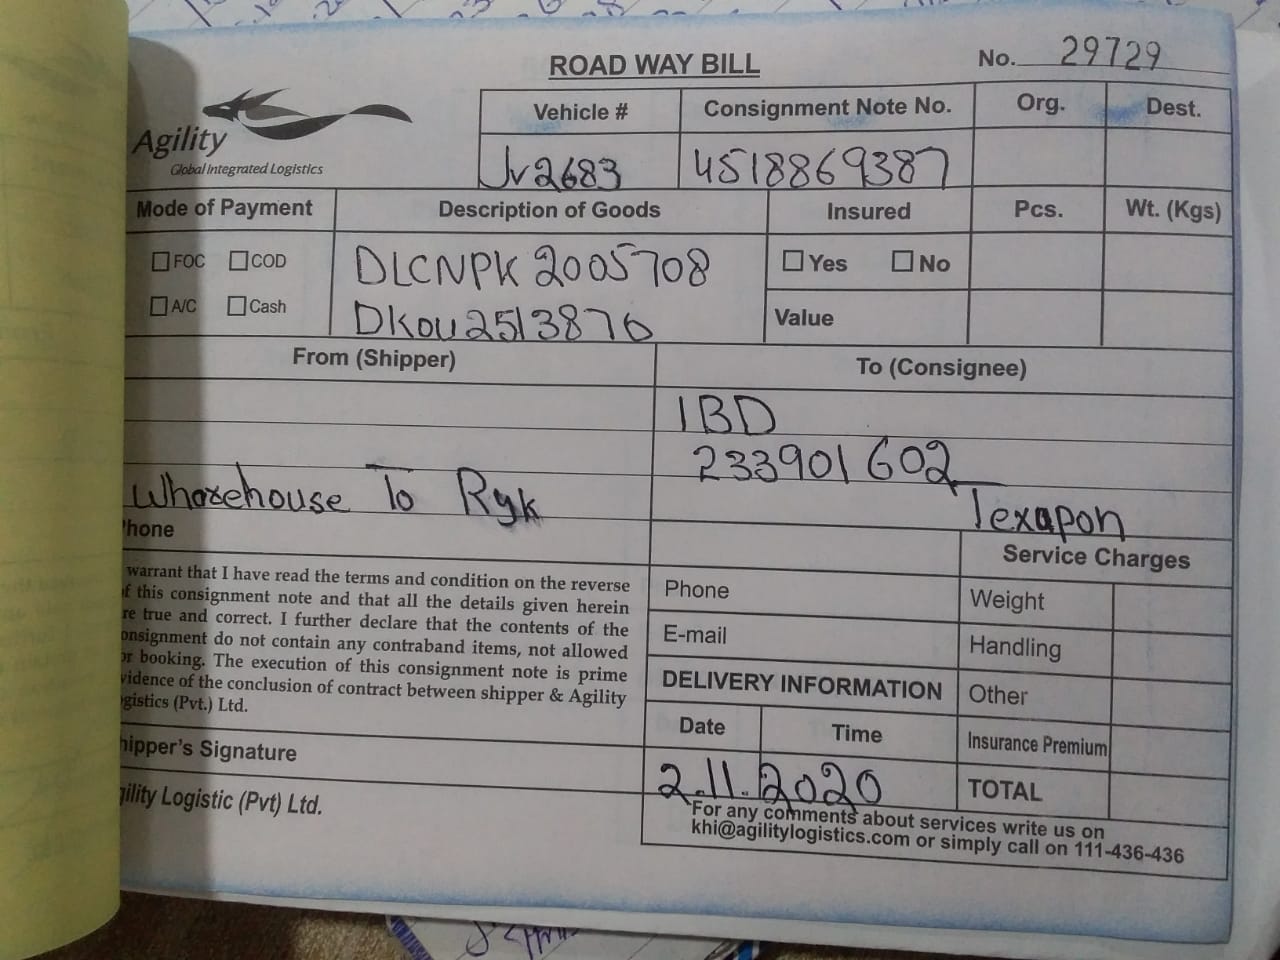 ROAD WAY BILL
No. 29729
Agility
Global Integrated Logistics
Vehicle #
Consignment Note No.
Org.
Dest.
Jv2683
4518869387
Mode of Payment
Description of Goods
Insured
Pcs.
Wt. (Kgs)
FOC COD
A/C Cash
DLCNPK2005708
DKou2513876
Yes No
Value
From (Shipper)
To (Consignee)
IBD
233901602
Texapon
Wharehouse To Ryk
hone
warrant that I have read the terms and condition on the reverse
f this consignment note and that all the details given herein
re true and correct. I further declare that the contents of the
onsignment do not contain any contraband items, not allowed
or booking. The execution of this consignment note is prime
vidence of the conclusion of contract between shipper & Agility
gistics (Pvt.) Ltd.
hipper's Signature
gility Logistic (Pvt) Ltd.
Phone
E-mail
DELIVERY INFORMATION
Date
Time
2.11.2020
Service Charges
Weight
Handling
Other
Insurance Premium
TOTAL
For any comments about services write us on
khi@agilitylogistics.com or simply call on 111-436-436